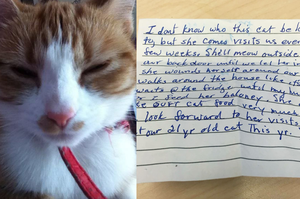 I dont know who this cat be lo
to, but she comes visits us ever
few weeks. She'll meow outside
our back door until we let her in
she wounds herself around our
walks around the house like
waits @ the fridge until my
I feed her baloney. She
our cat food very much
look forward to her visits
our 21 yr old cat this yr.